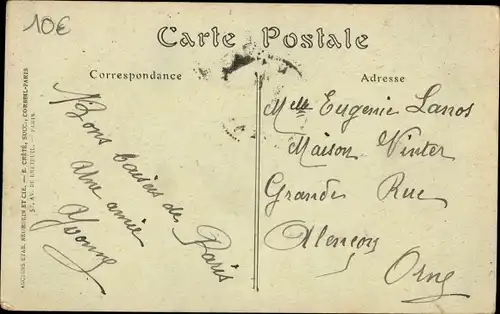 10€
Carte Postale
Correspondance
Adresse
Bons baisers de Paris
Une amie
Yvonne
Melle Eugenie Lanos
Maison Vinter
Grande Rue
Alençon
Orne
ANCIENS ETAB. NEURDEIN ET CIE. — E. CRÉTÉ, SUCC., CORBEIL-PARIS
52, AV. DE BRETEUIL. — PARIS